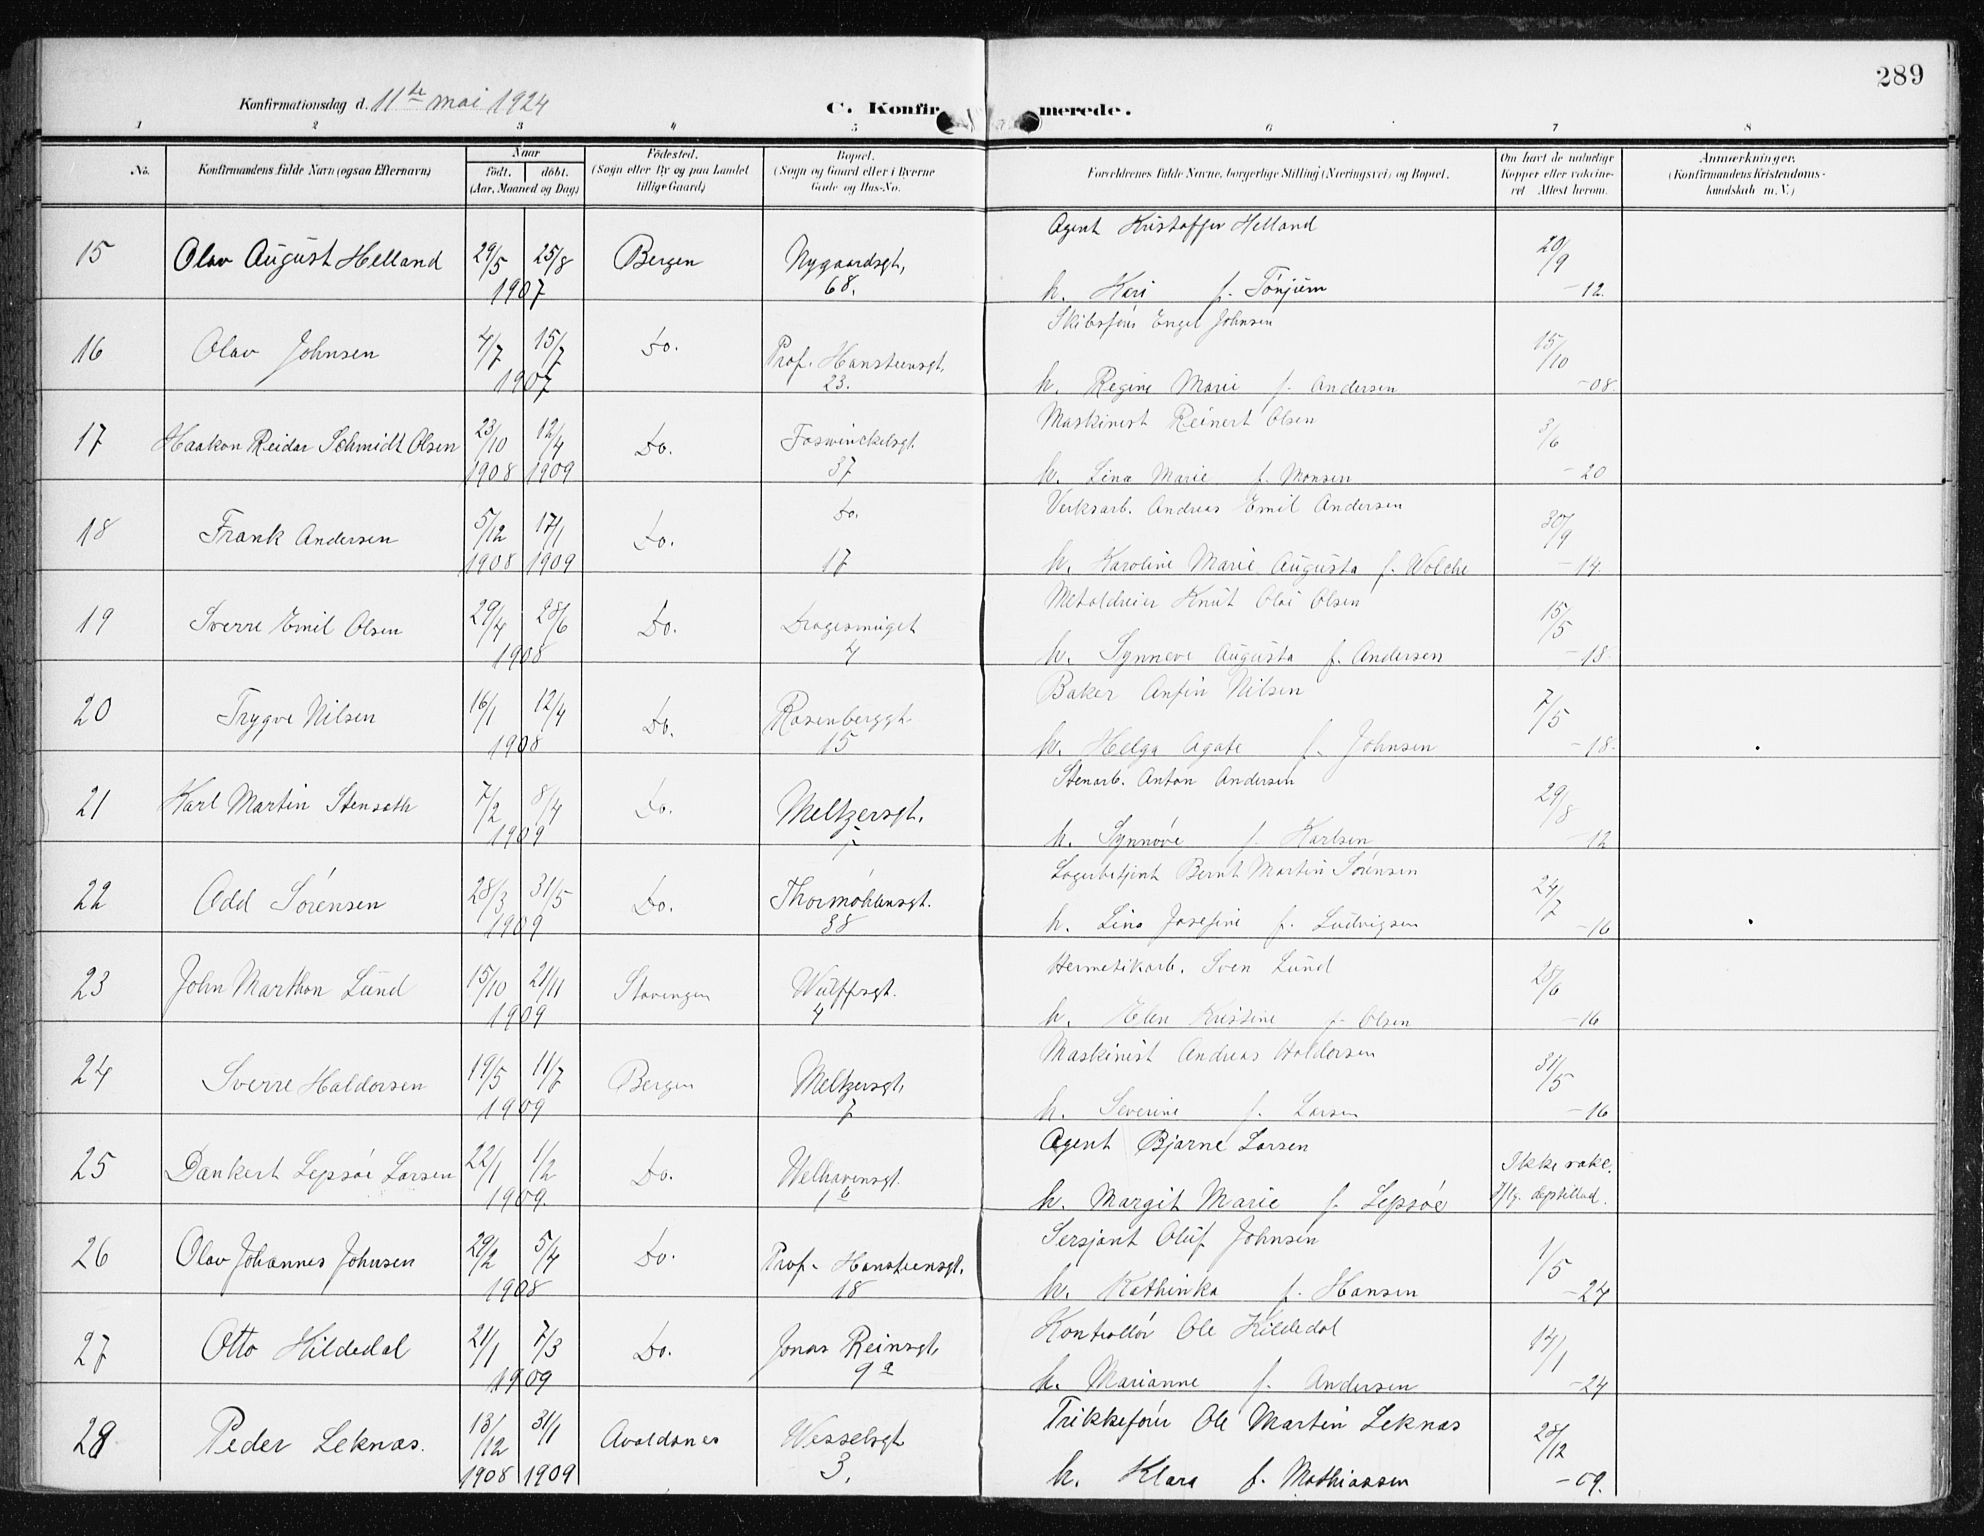 289
Konfirmationsdag d. 11te mai 1924
C. Konfirmerede.
1 2 3 4 5 6 7 8
No.
Konfirmandens fulde Navn (ogsaa Efternavn)
Naar
født. døbt.
(Aar, Maaned og Dag)
Fødested.
(Sogn eller By og paa Landet
tillige Gaard)
Bopæl.
(Sogn og Gaard eller i Byerne
Gade og Hus-No.
Forældrenes fulde Navne, borgerlige Stilling (Næringsvei) og Bopæl.
Om havt de naturlige
Kopper eller vaccine-
ret Attest herom.
Anmærkninger.
(Konfirmandens Kristendoms-
kundskab m. V.)
15 Olav August Helland 29/5 25/8 1907 Bergen Nygaardsgt. 68.
Agent Kristoffer Helland
h. Kari f. Tønjum 20/9 -12.
16 Olav Johnsen 4/7 15/7 1907 Do. Prof. Hansteensgt. 23.
Skibsfører Engel Johnsen
h. Regine Marie f. Andersen 15/10 -08.
17 Haakon Reidar Schmidt Olsen 23/10 1908 12/4 1909 Do. Foswinckelsgt. 37
Maskinist Reinert Olsen
h. Lina Marie f. Monsen 3/6 -20
18 Frank Andersen 5/12 1908 17/1 1909 Do. Do. 17
Verksarb. Andreas Emil Andersen
h. Karoline Marie Augusta f. Wolche 30/9 -14.
19 Sverre Emil Olsen 29/4 28/6 1908 Do. Dragesmuget 4
Metaldreier Knut Olai Olsen
h. Synneve Augusta f. Andersen 15/5 -18.
20 Trygve Nilsen 16/1 12/4 1908 Do. Rosenberggt. 15
Baker Anfin Nilsen
h. Helga Agate f. Johnsen 7/5 -18.
21 Karl Martin Stensoth 7/2 8/4 1909 Do. Meltzersgt.
Stenarb. Anton Andersen
h. Synnøve f. Karlsen 29/8 -12
22 Odd Sørensen 28/3 31/5 1909 Do. Thormøhlensgt. 38
Lagerbetjent Bernt Martin Sørensen
h. Lina Josefine f. Ludvigsen 24/7 -16
23 John Marthon Lund 15/10 21/11 1909 Stavanger Wulffsgt. 4
Hermetikarb. Sven Lund
h. Elen Kristine f. Olsen 28/6 -16
24 Sverre Haldorsen 19/5 11/7 1909 Bergen Meltzersgt. 7
Maskinist Andreas Haldorsen
h. Severine f. Larsen 31/5 -16
25 Dankert Lepsøe Larsen 22/1 1/2 1909. Do. Welhavensgt. 1b
Agent Bjarne Larsen
h. Margit Marie f. Lepsøe Ikke vakc.
26 Olav Johannes Johnsen 29/2 5/4 1908 Do. Prof. Hansteensgt. 18
Sersjant Oluf Johnsen
h. Kathinka f. Hansen 1/5 -24
27 Otto Kildedal 21/1 7/3 1909 Do. Jonas Reinsgt. 9a
Kontrollør Ole Kildedal
h. Marianne f. Andersen 14/1 -24
28 Peder Leknæs. 13/12 1908 31/1 1909 Avaldsnes Wesselsgt. 3.
Trikkefører Ole Martin Leknæs
h. Klara f. Mathiassen 28/12 -09.